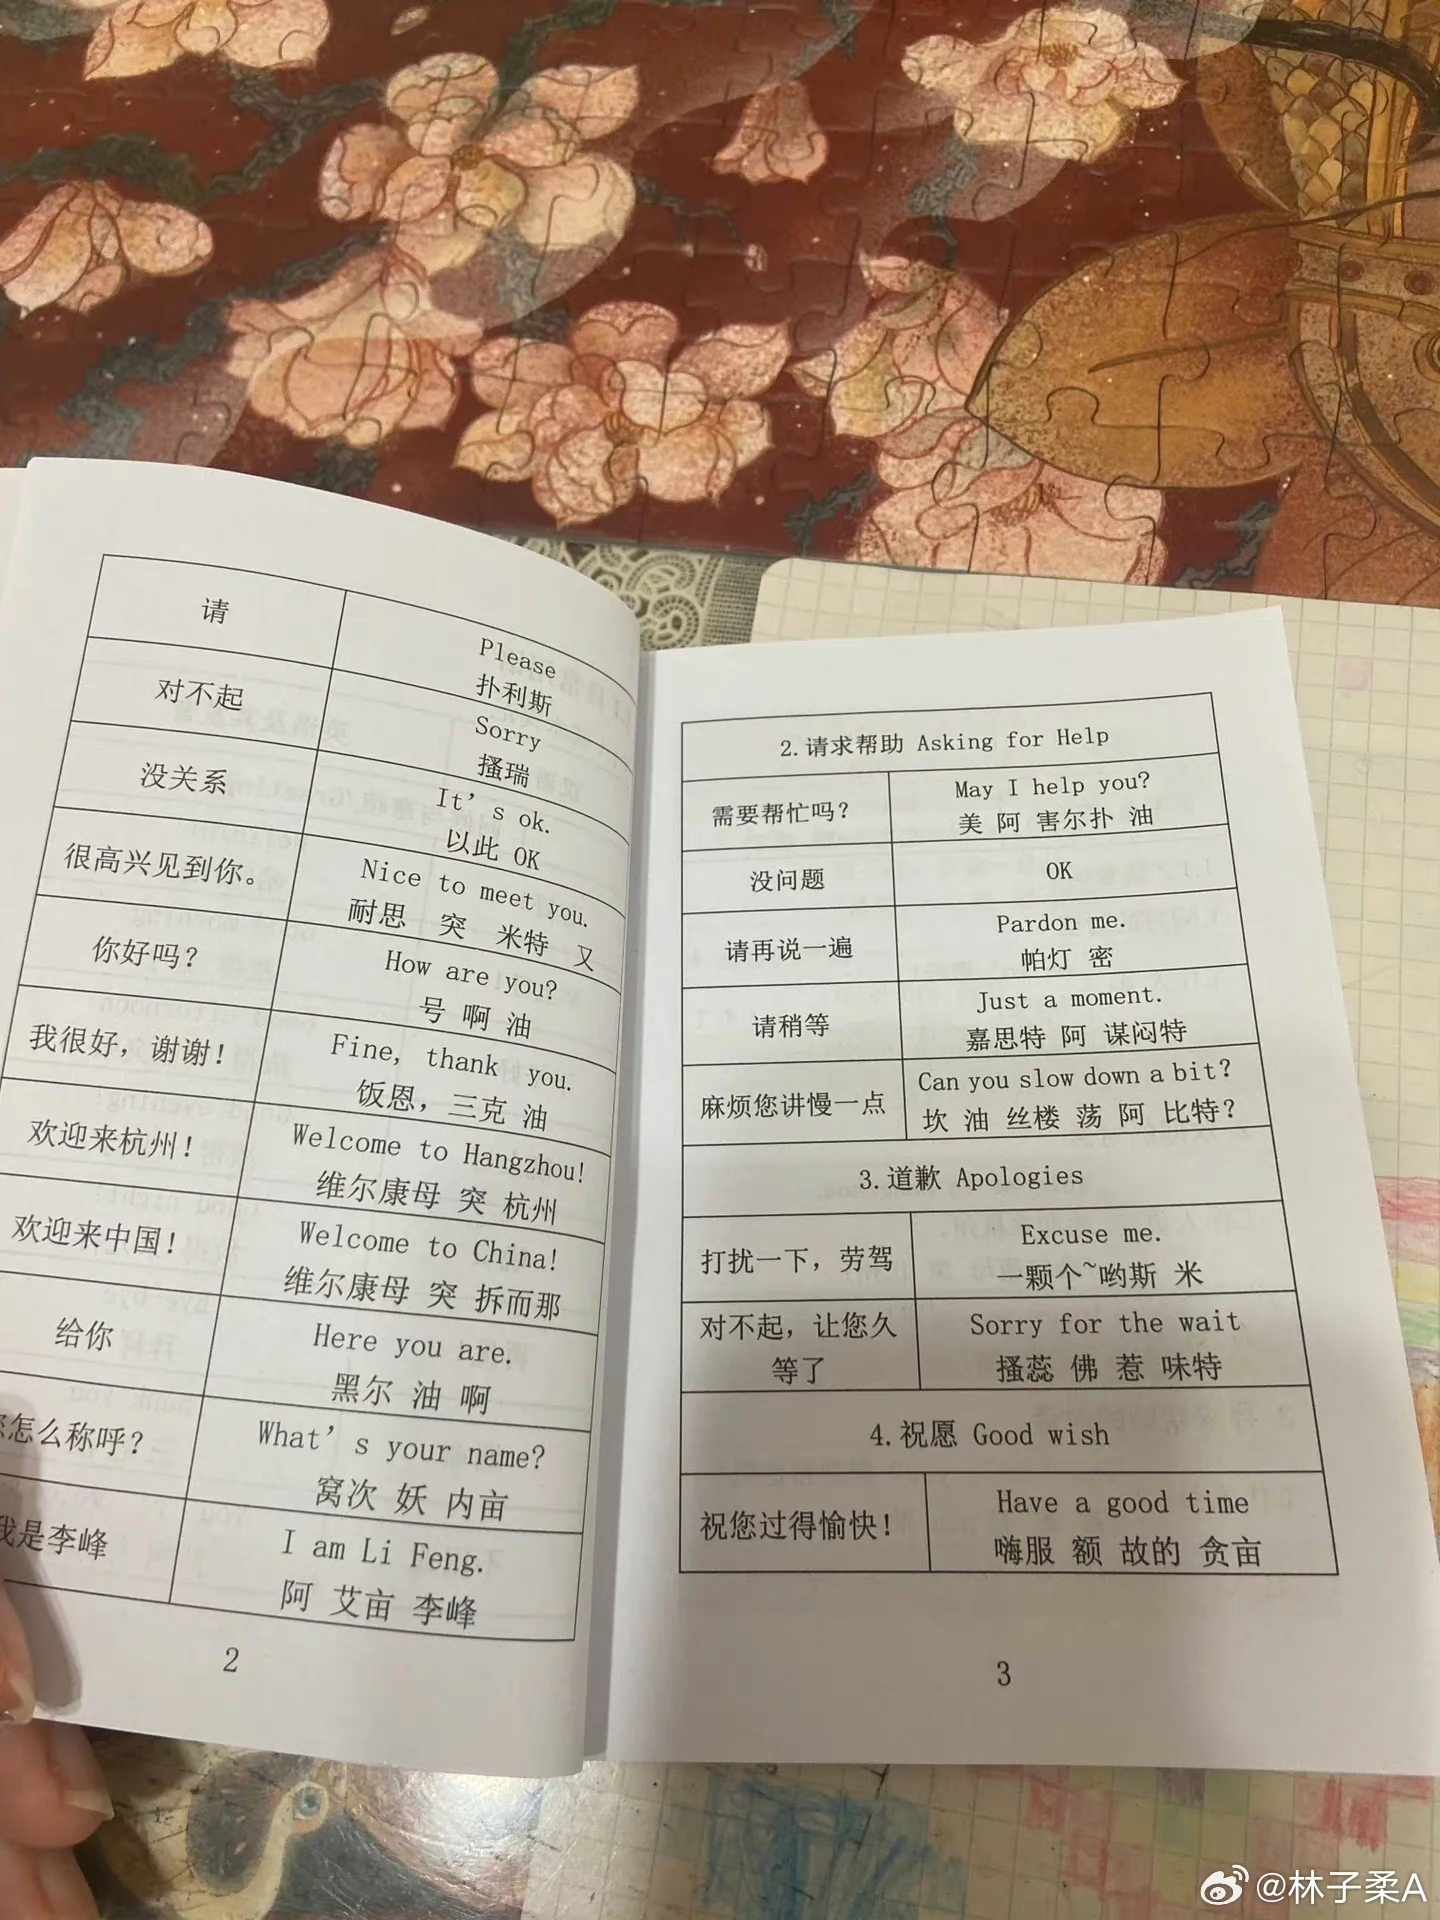 请
Please
扑利斯
对不起
Sorry
搔瑞
没关系
It's ok.
以此 OK
很高兴见到你。
Nice to meet you.
耐思 突 米特 又
你好吗？
How are you?
号 啊 油
我很好，谢谢！
Fine, thank you.
饭恩，三克 油
欢迎来杭州！
Welcome to Hangzhou!
维尔康母 突 杭州
欢迎来中国！
Welcome to China!
维尔康母 突 拆而那
给你
Here you are.
黑尔 油 啊
怎么称呼？
What's your name?
窝次 妖 内亩
我是李峰
I am Li Feng.
阿 艾亩 李峰
2
2.请求帮助 Asking for Help
需要帮忙吗？
May I help you?
美 阿 害尔扑 油
没问题
OK
请再说一遍
Pardon me.
帕灯 密
请稍等
Just a moment.
嘉思特 阿 谋闷特
麻烦您讲慢一点
Can you slow down a bit?
坎 油 丝楼 荡 阿 比特？
3.道歉 Apologies
打扰一下，劳驾
Excuse me.
一颗个~哟斯 米
对不起，让您久
等了
Sorry for the wait
搔蕊 佛 惹 味特
4.祝愿 Good wish
祝您过得愉快！
Have a good time
嗨服 额 故的 贪亩
3
@林子柔A